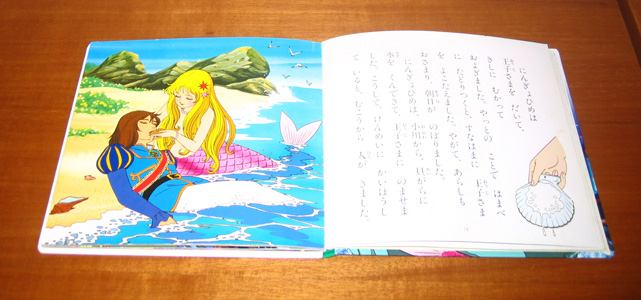 にんぎょひめは
王子さまを だいて、
きしに むかって
およぎました。やっとの ことで はまべ
に たどりつくと、すなはまに 王子さま
を よこたえました。やがて、あらしも
おさまり、朝日が のぼりました。
にんぎょひめは、小川から、貝がらに
水を くんできて、王子さまに のませま
した。こうして けんめいに かいほうし
て いると、むこうから 人が きました。